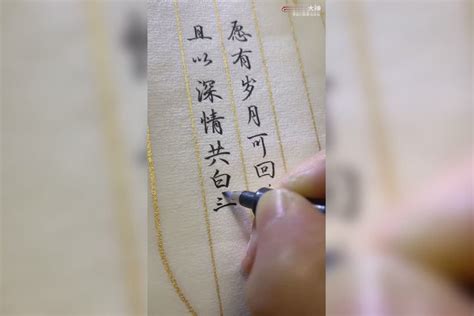 大神
愿有岁月可回
且以深情共白